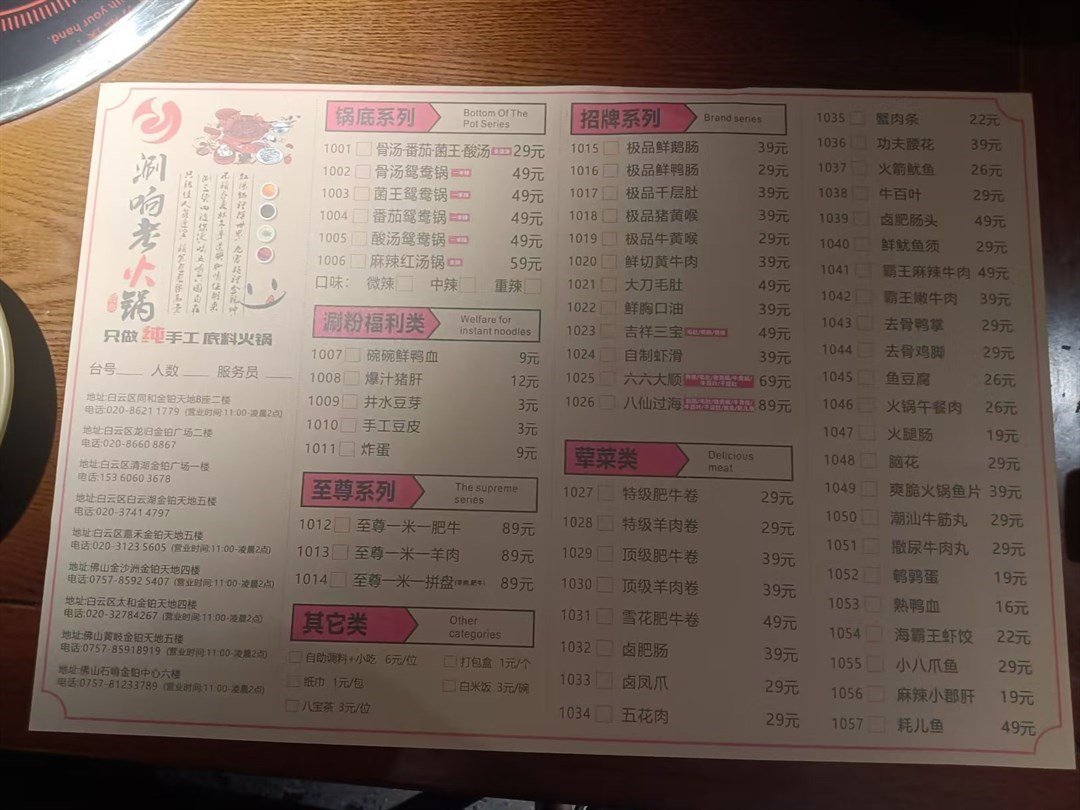 with your hand.
涮响老火锅
只做纯手工底料火锅
台号 人数 服务员
地址:白云区同和金铂天地B座二楼
电话:020-8621 1779 (营业时间:11:00-凌晨2点)
地址:白云区龙归金铂广场二楼
电话:020-8660 8867
地址:白云区清湖金铂广场一楼
电话:153 6060 3678
地址:白云区白云湖金铂天地五楼
电话:020-3741 4797
地址:白云区嘉禾金铂天地五楼
电话:020-3123 5605 (营业时间:11:00-凌晨2点)
地址:佛山金沙洲金铂天地四楼
电话:0757-8592 5407 (营业时间:11:00-凌晨2点)
地址:白云区太和金铂天地四楼
电话:020-32784267 (营业时间:11:00-凌晨2点)
地址:佛山黄岐金铂天地五楼
电话:0757-85918919 (营业时间:11:00-凌晨2点)
地址:佛山石啃金铂中心六楼
电话:0757-81233789 (营业时间:11:00-凌晨2点)
锅底系列 Bottom Of The
Pot Series
1001 骨汤·番茄·菌王·酸汤 29元
1002 骨汤鸳鸯锅 49元
1003 菌王鸳鸯锅 49元
1004 番茄鸳鸯锅 49元
1005 酸汤鸳鸯锅 49元
1006 麻辣红汤锅 59元
口味: 微辣 中辣 重辣
涮粉福利类 Welfare for
instant noodles
1007 碗碗鲜鸭血 9元
1008 爆汁猪肝 12元
1009 井水豆芽 3元
1010 手工豆皮 3元
1011 炸蛋 9元
至尊系列 The supreme
series
1012 至尊一米一肥牛 89元
1013 至尊一米一羊肉 89元
1014 至尊一米一拼盘 89元
其它类 Other
categories
自助调料+小吃 6元/位 打包盒 1元/个
纸巾 1元/包 白米饭 3元/碗
八宝茶 3元/位
招牌系列 Brand series
1015 极品鲜鹅肠 39元
1016 极品鲜鸭肠 29元
1017 极品千层肚 39元
1018 极品猪黄喉 39元
1019 极品牛黄喉 29元
1020 鲜切黄牛肉 39元
1021 大刀毛肚 49元
1022 鲜胸口油 39元
1023 吉祥三宝 49元
1024 自制虾滑 39元
1025 六六大顺 69元
1026 八仙过海 89元
荤菜类 Delicious
meat
1027 特级肥牛卷 29元
1028 特级羊肉卷 29元
1029 顶级肥牛卷 39元
1030 顶级羊肉卷 39元
1031 雪花肥牛卷 49元
1032 卤肥肠 39元
1033 卤凤爪 29元
1034 五花肉 29元
1035 蟹肉条 22元
1036 功夫腰花 39元
1037 火箭鱿鱼 26元
1038 牛百叶 29元
1039 卤肥肠头 49元
1040 鲜鱿鱼须 29元
1041 霸王麻辣牛肉 49元
1042 霸王嫩牛肉 39元
1043 去骨鸭掌 29元
1044 去骨鸡脚 29元
1045 鱼豆腐 26元
1046 火锅午餐肉 26元
1047 火腿肠 19元
1048 脑花 29元
1049 爽脆火锅鱼片 39元
1050 潮汕牛筋丸 29元
1051 撒尿牛肉丸 29元
1052 鹌鹑蛋 19元
1053 熟鸭血 16元
1054 海霸王虾饺 22元
1055 小八爪鱼 29元
1056 麻辣小郡肝 19元
1057 耗儿鱼 49元